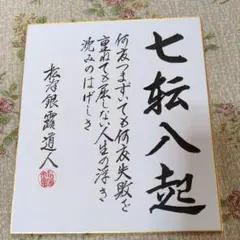 七転八起
何度つまずいても何度失敗を
重ねても屈しない人生の浮き
沈みのはげしさ
松岸銀露道人